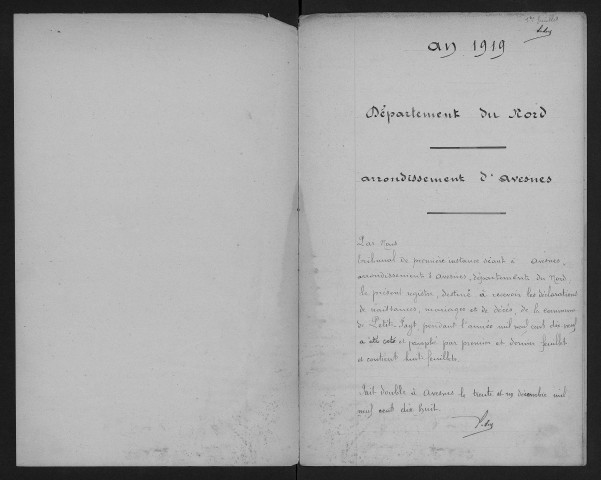 1er feuillet
an 1919
Département du Nord
arrondissement d'Avesnes
Par Nous
tribunal de première instance séant à Avesnes,
arrondissement d'Avesnes, département du Nord,
le présent registre, destiné à recevoir les déclarations
de naissances, mariages et de décès, de la commune
de Petit-Fayt, pendant l'année mil neuf cent dix neuf
a été coté et paraphé par premier et dernier feuillet
et contient huit feuillets.
Fait double à Avesnes le trente et un décembre mil
neuf cent dix huit.